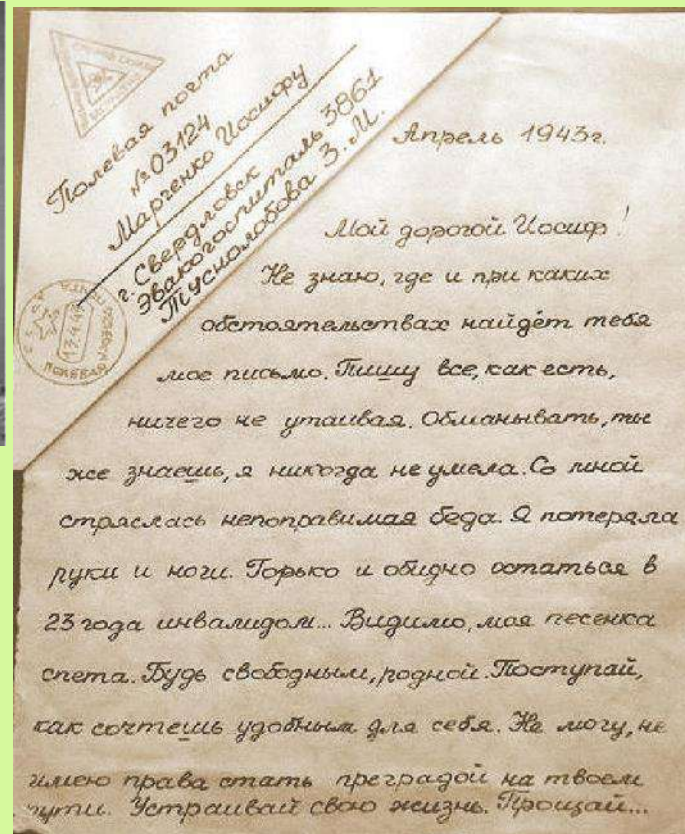 Полевая почта
№ 03124
Марченко Иосифу
г. Свердловск
Эвакогоспиталь 3861
Туснолобова З.М.
13.4.43
ПОЛЕВАЯ
Апрель 1943г.
Мой дорогой Иосиф!
Не знаю, где и при каких
обстоятельствах найдёт тебя
мое письмо. Пишу все, как есть,
ничего не утаивая. Обманывать, ты
же знаешь, я никогда не умела. Со мной
стряслась непоправимая беда. Я потеряла
руки и ноги. Горько и обидно остаться в
23 года инвалидом... Видимо, моя песенка
спета. Будь свободным, родной. Поступай,
как сочтешь удобным для себя. Не могу, не
имею права стать преградой на твоем
пути. Устраивай свою жизнь. Прощай...